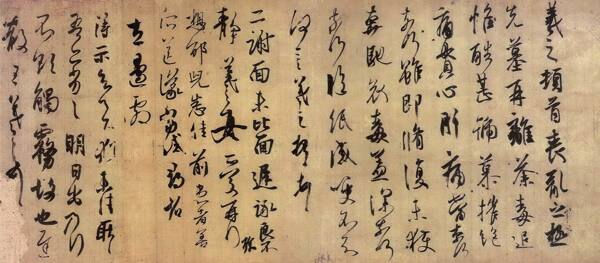 羲之頓首喪亂之極
先墓再離荼毒追
惟酷甚號慕摧絕
痛貫心肝痛當奈何
奈何雖即脩復未獲
奔馳哀毒益深奈何
奈何臨紙感哽不知
何言羲之頓首頓首
二謝面未比面遲詠良不
靜羲之女愛再拜
想邵兒悉佳前患者善
送議當試尋省
左邊劇
得示知足下猶未佳耿耿
吾亦劣劣明日出乃行
不欲觸霧故也遲
散王羲之頓首